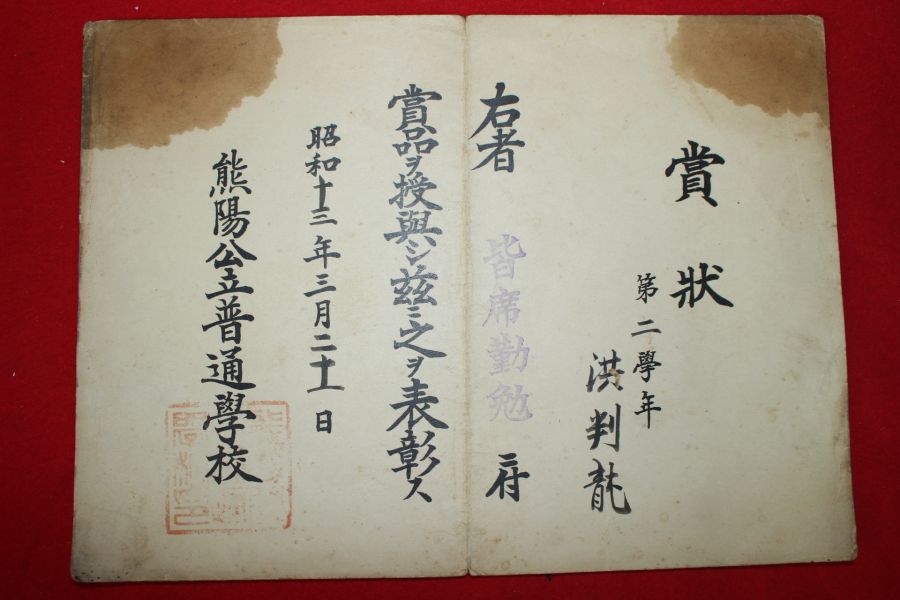 賞狀
第二學年
洪判龍
右者 皆席勤勉 ニ付
賞品ヲ授與シ茲ニ之ヲ表彰ス
昭和十三年三月二十一日
熊陽公立普通學校